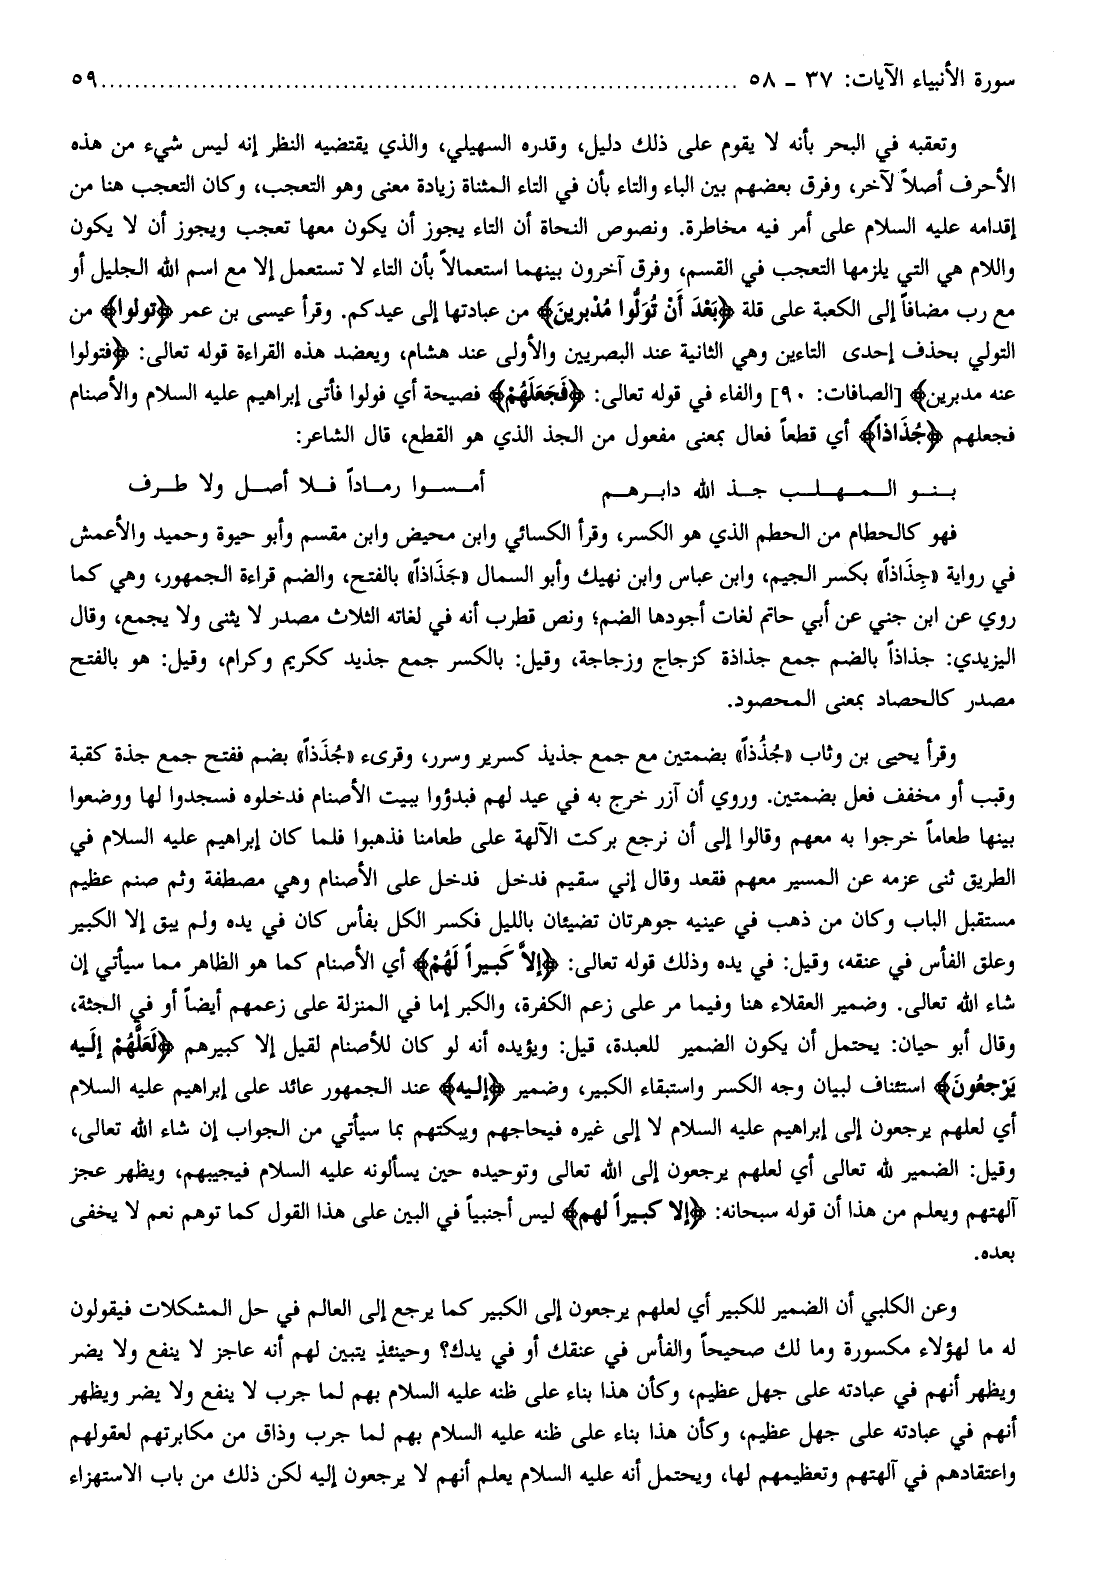 سورة الأنبياء الآيات: ٣٧ ـ ٥٨ ........................................................................................ ٥٩
وتعقبه في البحر بأنه لا يقوم على ذلك دليل، وقدره السهيلي، والذي يقتضيه النظر إنه ليس شيء من هذه
الأحرف أصلاً لآخر، وفرق بعضهم بين الباء والتاء بأن في التاء المثناة زيادة معنى وهو التعجب، وكان التعجب هنا من
إقدامه عليه السلام على أمر فيه مخاطرة. ونصوص النحاة أن التاء يجوز أن يكون معها تعجب ويجوز أن لا يكون
واللام هي التي يلزمها التعجب في القسم، وفرق آخرون بينهما استعمالاً بأن التاء لا تستعمل إلا مع اسم الله الجليل أو
مع رب مضافاً إلى الكعبة على قلة ﴿بَعْدَ أَنْ تُوَلُّوا مُدْبرينَ﴾ من عبادتها إلى عيدكم. وقرأ عيسى بن عمر ﴿تولوا﴾ من
التولي بحذف إحدى التاءين وهي الثانية عند البصريين والأولى عند هشام، ويعضد هذه القراءة قوله تعالى: ﴿فتولوا
عنه مدبرين﴾ [الصافات: ٩٠] والفاء في قوله تعالى: ﴿فَجَعَلَهُمْ﴾ فصيحة أي فولوا فأتى إبراهيم عليه السلام والأصنام
فجعلهم ﴿جُذَاذاً﴾ أي قطعاً فعال بمعنى مفعول من الجذ الذي هو القطع، قال الشاعر:
بنو المهلب جذ الله دابرهم أمسوا رماداً فلا أصل ولا طرف
فهو كالحطام من الحطم الذي هو الكسر، وقرأ الكسائي وابن محيض وابن مقسم وأبو حيوة وحميد والأعمش
في رواية «جِذَاذاً» بكسر الجيم، وابن عباس وابن نهيك وأبو السمال «جَذَاذاً» بالفتح، والضم قراءة الجمهور، وهي كما
روي عن ابن جني عن أبي حاتم لغات أجودها الضم؛ ونص قطرب أنه في لغاته الثلاث مصدر لا يثنى ولا يجمع، وقال
اليزيدي: جذاذاً بالضم جمع جذاذة كزجاج وزجاجة، وقيل: بالكسر جمع جذيد ككريم وكرام، وقيل: هو بالفتح
مصدر كالحصاد بمعنى المحصود.
وقرأ يحيى بن وثاب «جُذُذاً» بضمتين مع جمع جذيذ كسرير وسرر، وقرىء «جُذَذاً» بضم ففتح جمع جذة كقبة
وقبب أو مخفف فعل بضمتين. وروي أن آزر خرج به في عيد لهم فبدؤوا ببيت الأصنام فدخلوه فسجدوا لها ووضعوا
بينها طعاماً خرجوا به معهم وقالوا إلى أن نرجع بركت الآلهة على طعامنا فذهبوا فلما كان إبراهيم عليه السلام في
الطريق ثنى عزمه عن المسير معهم فقعد وقال إني سقيم فدخل فدخل على الأصنام وهي مصطفة وثم صنم عظيم
مستقبل الباب وكان من ذهب في عينيه جوهرتان تضيئان بالليل فكسر الكل بفأس كان في يده ولم يبق إلا الكبير
وعلق الفأس في عنقه، وقيل: في يده وذلك قوله تعالى: ﴿إلاَّ كَبيراً لَهُمْ﴾ أي الأصنام كما هو الظاهر مما سيأتي إن
شاء الله تعالى. وضمير العقلاء هنا وفيما مر على زعم الكفرة، والكبر إما في المنزلة على زعمهم أيضاً أو في الجثة،
وقال أبو حيان: يحتمل أن يكون الضمير للعبدة، قيل: ويؤيده أنه لو كان للأصنام لقيل إلا كبيرهم ﴿لَعَلَّهُمْ إلَيه
يَرْجعُونَ﴾ استئناف لبيان وجه الكسر واستبقاء الكبير، وضمير ﴿إليه﴾ عند الجمهور عائد على إبراهيم عليه السلام
أي لعلهم يرجعون إلى إبراهيم عليه السلام لا إلى غيره فيحاجهم ويبكتهم بما سيأتي من الجواب إن شاء الله تعالى،
وقيل: الضمير لله تعالى أي لعلهم يرجعون إلى الله تعالى وتوحيده حين يسألونه عليه السلام فيجيبهم، ويظهر عجز
آلهتهم ويعلم من هذا أن قوله سبحانه: ﴿إلا كبيراً لهم﴾ ليس أجنبياً في البين على هذا القول كما توهم نعم لا يخفى
بعده.
وعن الكلبي أن الضمير للكبير أي لعلهم يرجعون إلى الكبير كما يرجع إلى العالم في حل المشكلات فيقولون
له ما لهؤلاء مكسورة وما لك صحيحاً والفأس في عنقك أو في يدك؟ وحينئذٍ يتبين لهم أنه عاجز لا ينفع ولا يضر
ويظهر أنهم في عبادته على جهل عظيم، وكأن هذا بناء على ظنه عليه السلام بهم لما جرب لا ينفع ولا يضر ويظهر
أنهم في عبادته على جهل عظيم، وكأن هذا بناء على ظنه عليه السلام بهم لما جرب وذاق من مكابرتهم لعقولهم
واعتقادهم في آلهتهم وتعظيمهم لها، ويحتمل أنه عليه السلام يعلم أنهم لا يرجعون إليه لكن ذلك من باب الاستهزاء